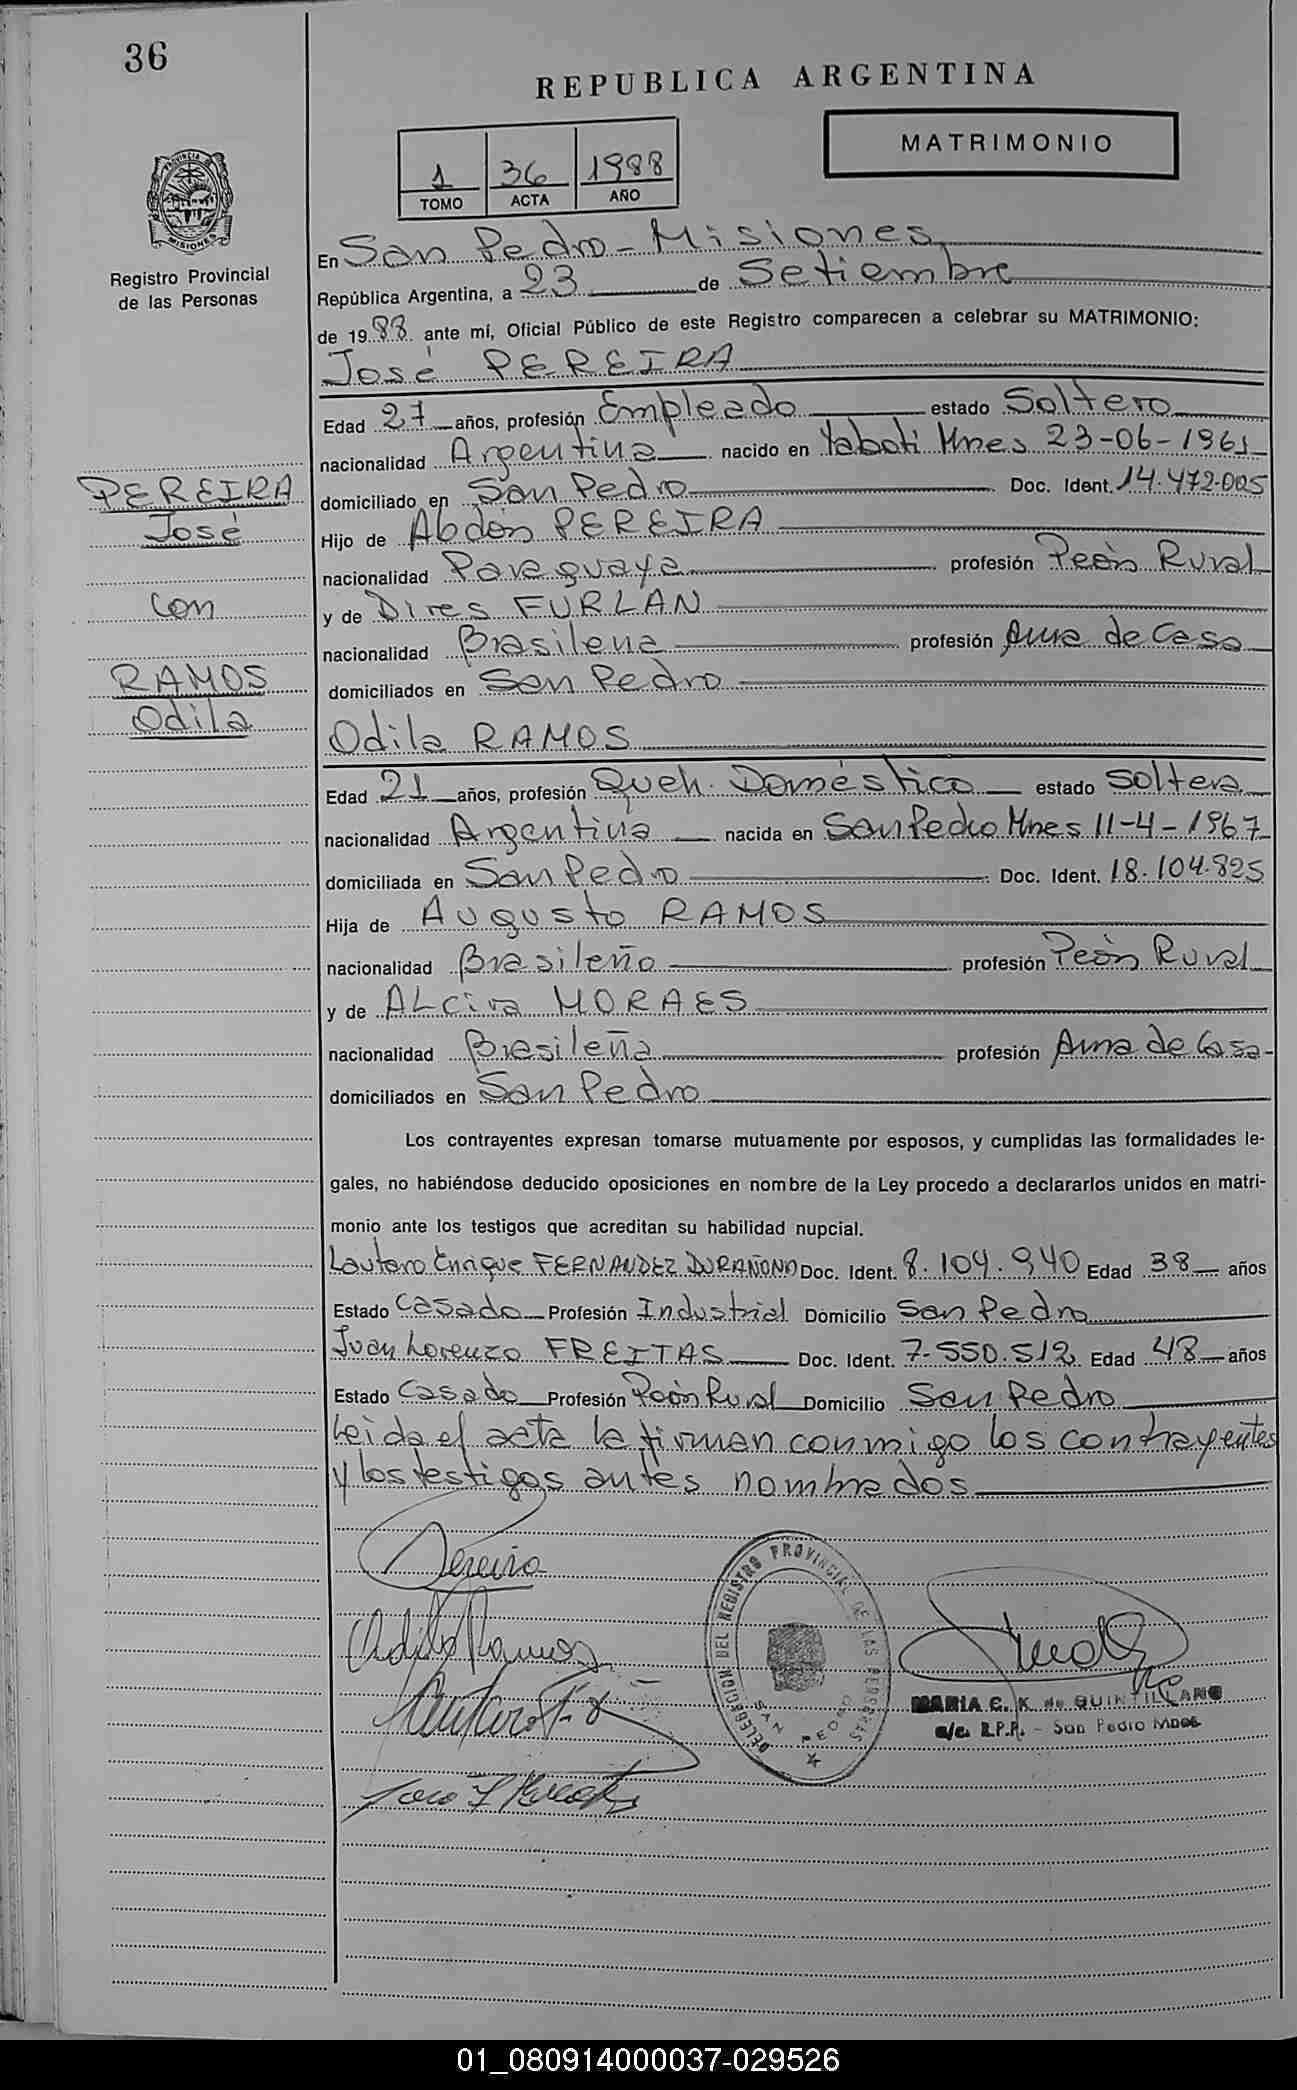 36
REPUBLICA ARGENTINA
MATRIMONIO
1 36 1988
TOMO ACTA AÑO
PROVINCIA DE MISIONES
Registro Provincial
de las Personas
En San Pedro - Misiones
República Argentina, a 23 de Setiembre
de 1988 ante mí, Oficial Público de este Registro comparecen a celebrar su MATRIMONIO:
José PEREIRA
Edad 27 años, profesión Empleado estado Soltero
nacionalidad Argentina nacido en Yaboti Mnes 23-06-1961
domiciliado en San Pedro Doc. Ident. 14.472.005
Hijo de Abdón PEREIRA
nacionalidad Paraguaya profesión Peón Rural
y de Dires FURLAN
nacionalidad Brasilena profesión Ama de Casa
domiciliados en San Pedro
PEREIRA
José
con
RAMOS
Odila
Odila RAMOS
Edad 21 años, profesión Queh. Doméstico estado Soltera
nacionalidad Argentina nacida en San Pedro Mnes 11-4-1967
domiciliada en San Pedro Doc. Ident. 18.104.825
Hija de Augusto RAMOS
nacionalidad Brasileño profesión Peón Rural
y de ALcira MORAES
nacionalidad Brasileña profesión Ama de Casa
domiciliados en San Pedro
Los contrayentes expresan tomarse mutuamente por esposos, y cumplidas las formalidades le-
gales, no habiéndose deducido oposiciones en nombre de la Ley procedo a declararlos unidos en matri-
monio ante los testigos que acreditan su habilidad nupcial.
Lautaro Enrique FERNANDEZ DURAÑONA Doc. Ident. 8.104.940 Edad 38 años
Estado Casado Profesión Industrial Domicilio San Pedro
Juan Lorenzo FREITAS Doc. Ident. 7.550.512 Edad 48 años
Estado Casado Profesión Peón Rural Domicilio San Pedro
Leida el acta la firman conmigo los contrayentes
y los testigos antes nombrados
Pereira
Odila Ramos
DELEGACION DEL REGISTRO PROVINCIAL DE LAS PERSONAS
SAN PEDRO
MARIA C. K. de QUINTILLANO
a/c. R.P.P. - San Pedro Mnes.
01_080914000037-029526